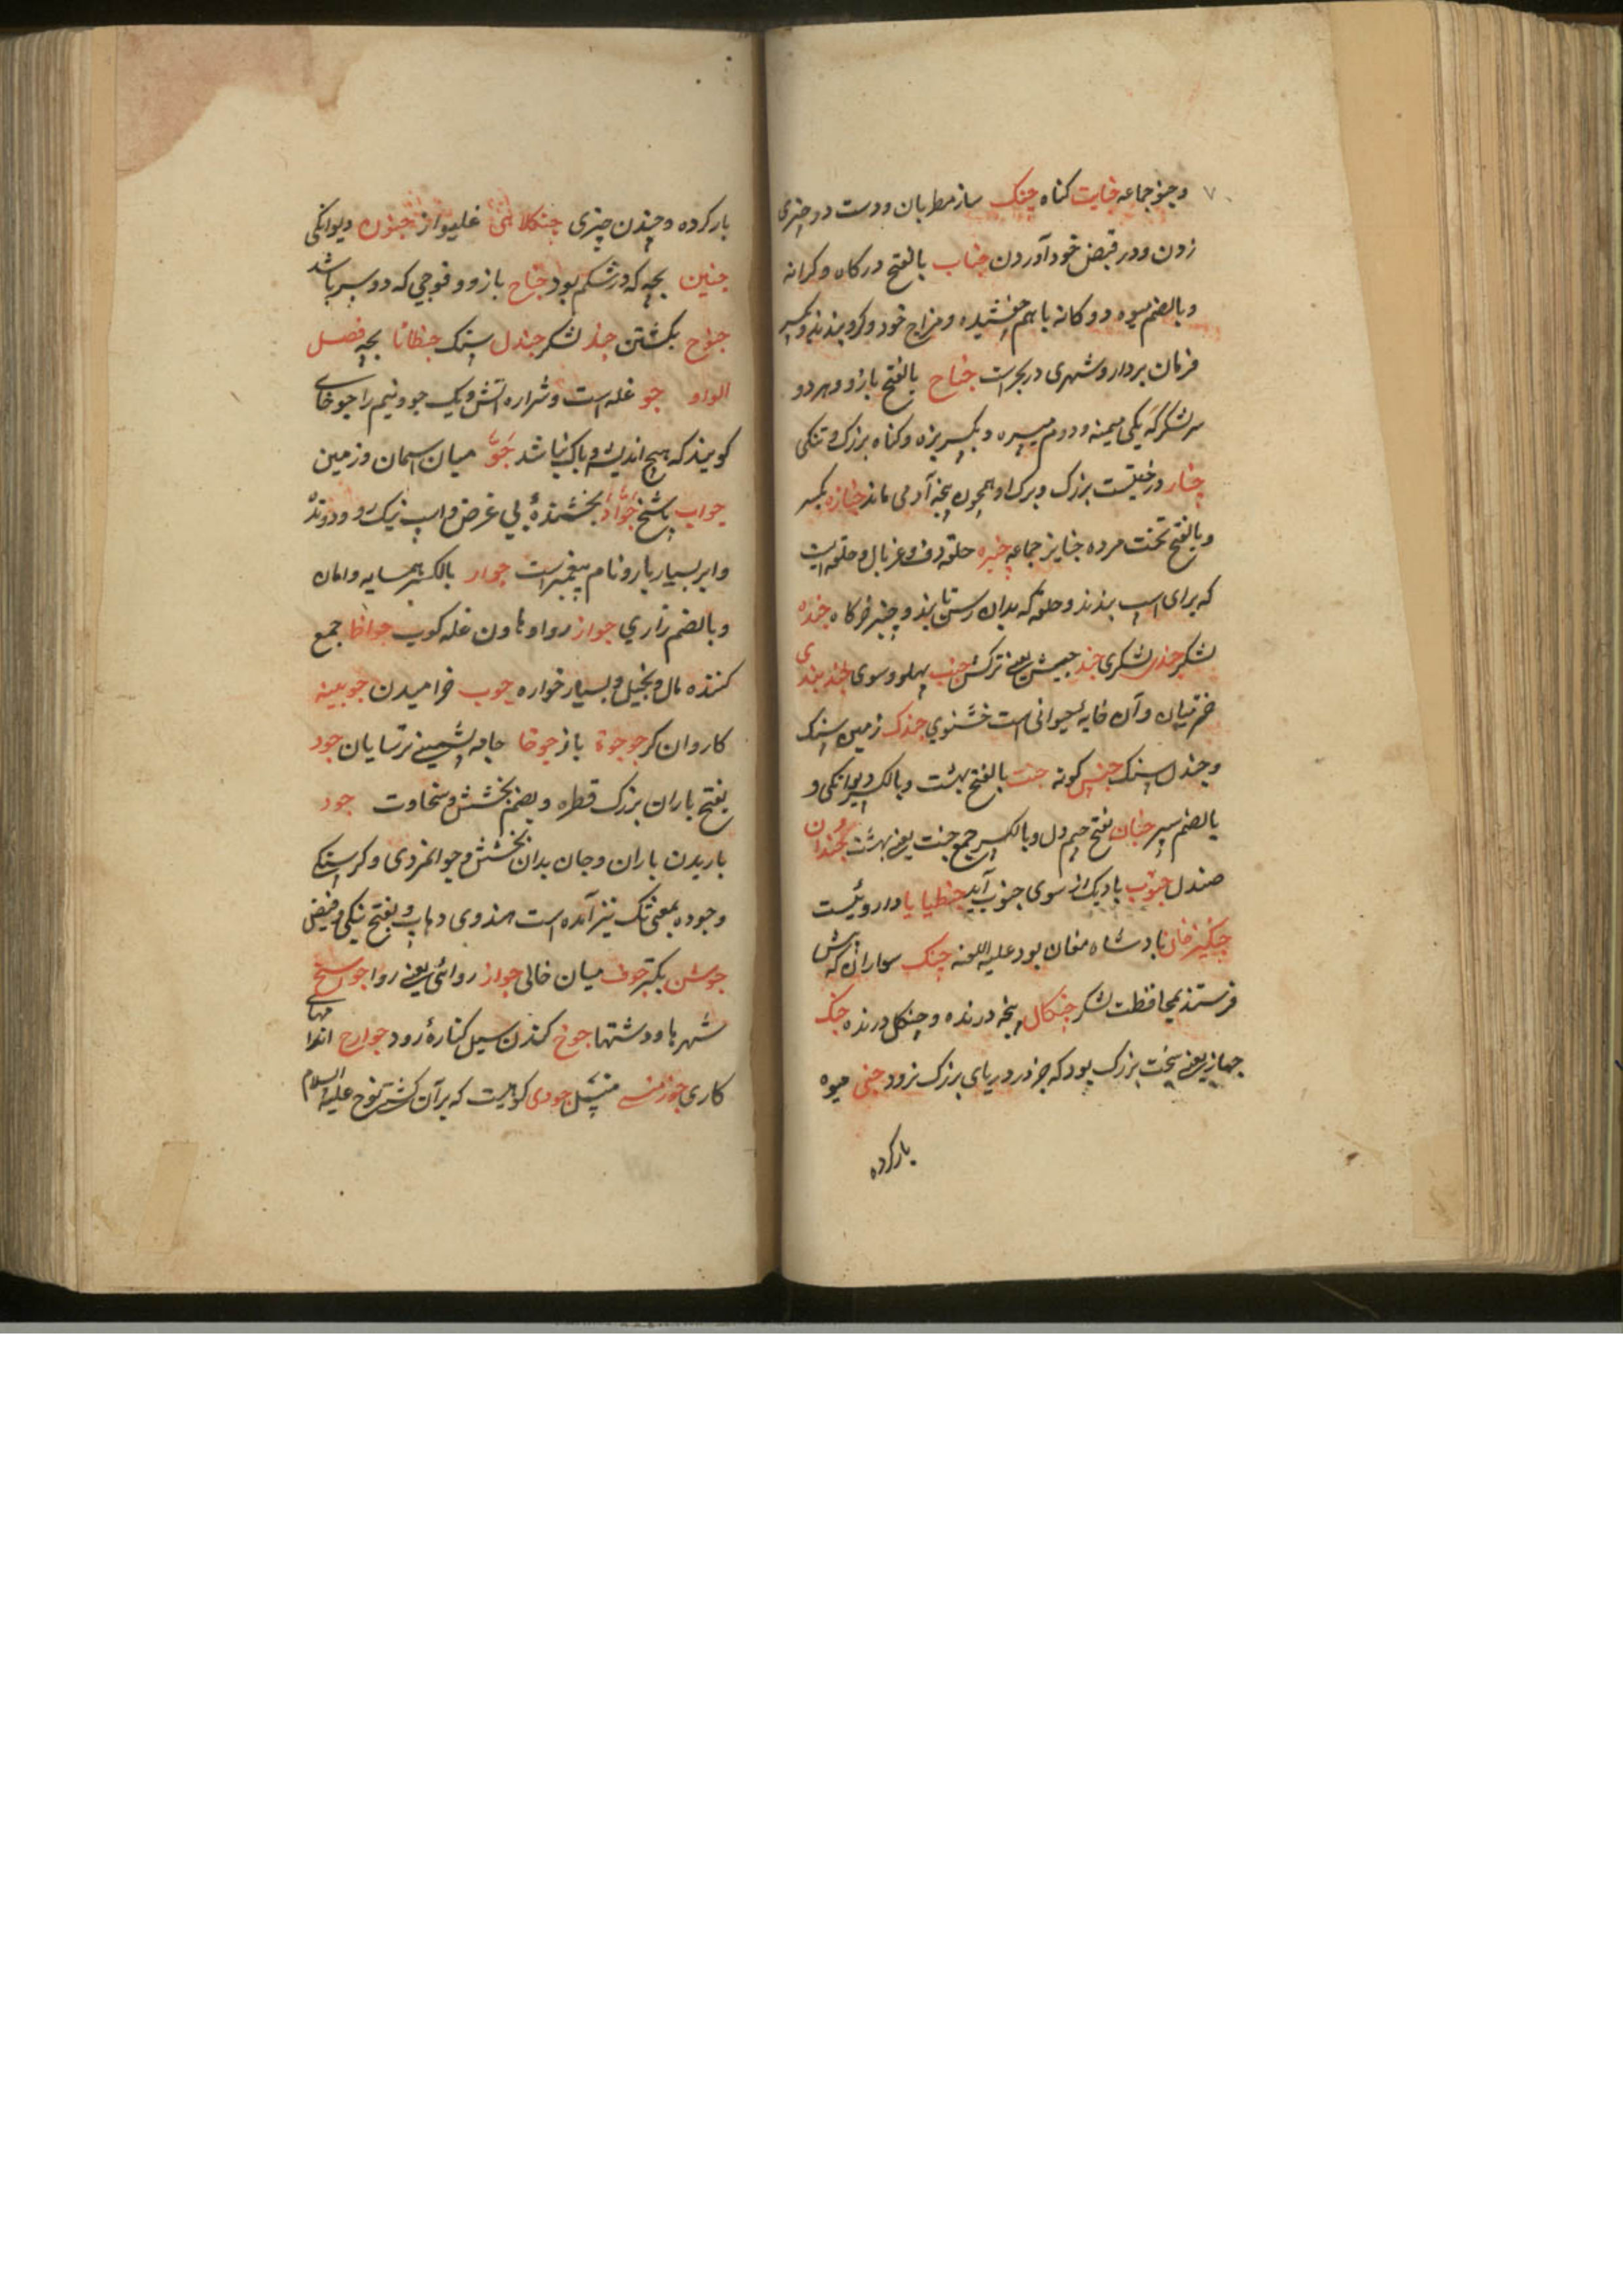 وجنو جماعه جنایت کناه چنک ساز مطربان ودست در چیزی
زدن ودر قبض خود آوردن جناب بالفتح درکاه وکرانه
وبالضم میوه دوکانه باهم چفسیده ومزاج خود وکرو بندند وبکسر
فرمان بردار وشهری در بحر است جناح بالفتح بازو وهردو
سر لشکر که یکی میمنه ودوم میسره وبکسر بزه وکناه بزرک وتنکی
چنار درختیست بزرک وبرک او همچون پنجه آدمی ماند جنازه بکسر
وبالفتح تخت مرده جنایز جماعه چنبره حلقه دف وغربال وحلقه ایست
که برای اسپ بندند وحلقه که بدان رسن تابند وچنبر خرکاه جنده
لشکر جندی لشکری جنب پهلو وسوی جند بیدستر
وآن خایه حیوانی است جندل زمین سنک
وجندل سنک جنس کونه جنت بالفتح بهشت وبالکسر دیوانکی و
بالضم سپر جنان بفتح جیم دل وبالکسر جمع جنت یعنی بهشت چندان
صندل جنوب بادیکه از سوی جنوب آید جنطیایا داروئیست
چنکیز خان بادشاه مغان بود علیه اللعنه چنک سواران که پیش
فرستند بمحافظت لشکر چنکال پنجه درنده وچنکل درنده جنک
جهاز یعنی سخت بزرک بود که جز در دریای بزرک نرود جنی میوه
بارکرده
بارکرده وچیدن چیزی چنکلاهی غلیواز جنون دیوانکی
جنین بچه که در شکم بود جناح بازو وفوجی که دو سر باشد
جنوح بکشتن جند لشکر جندل سنک بچه فصل
الواو جو غله است وشراره اتش ویک جو ونیم را جو خای
کویند که هیچ اندیشه وباک نباشد جوّ میان اسمان وزمین
جواب پاسخ جوّاد بخشندهٔ بی غرض واسپ نیک رو ودونده
وابر بسیار بار ونام پیغمبر است جوار بالکسر همسایه وامان
وبالضم زاری جواز روا وهاون غله کوب جواظ جمع
کننده مال وبخیل وبسیار خواره جوب خرامیدن جوبینه
کاروانکر جوجوة باز جوخا جامه پشمینه ترسایان جود
بفتح باران بزرک قطره وبضم بخشش وسخاوت جود
باریدن باران وجان بدان بخشش وجوانمردی وکرسنکی
وجوده بمعنی تک نیز آمده است هندوی دهاپ وبفتح نیکی وفیض
جوشن بکتر جوف میان خالی جواز روائی یعنی روا
شهرها ودشتها جوخ کندن سیل کنارهٔ رود جوارح اندامهای
کاری جودی کوهیست که برآن کشتی نوح علیه السلام